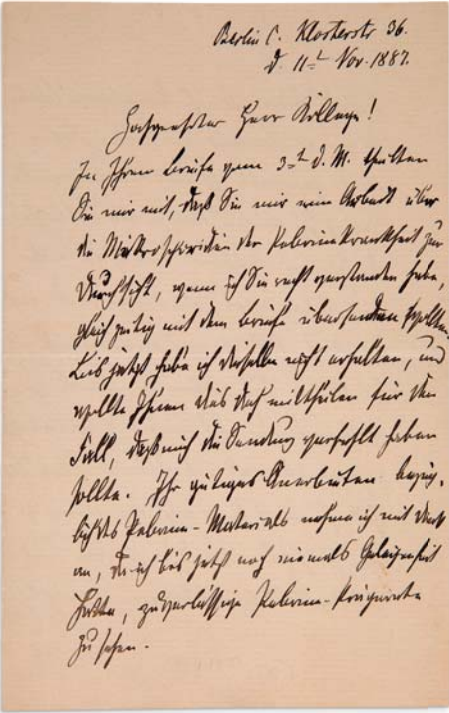 Berlin C. Klosterstr 36.
d. 11t Nov. 1887.
Hochgeehrter Herr Kollege!
In Ihrem Briefe vom 3t d. M. theilten
Sie mir mit, daß Sie mir eine Arbeit über
die Mikrosporidien der Pebrinekrankheit zur
Durchsicht, wenn ich Sie recht verstanden habe,
gleichzeitig mit dem Briefe übersenden wollten.
Bis jetzt habe ich dieselbe nicht erhalten, und
wollte Ihnen dies doch mittheilen für den
Fall, daß mich die Sendung verfehlt haben
sollte. Ihr gütiges Anerbieten bezüg-
lich des Pebrine-Materials nehme ich mit Dank
an, da ich bis jetzt noch niemals Gelegenheit
hatte, zuverlässige Pebrine-Präparate
zu sehen.